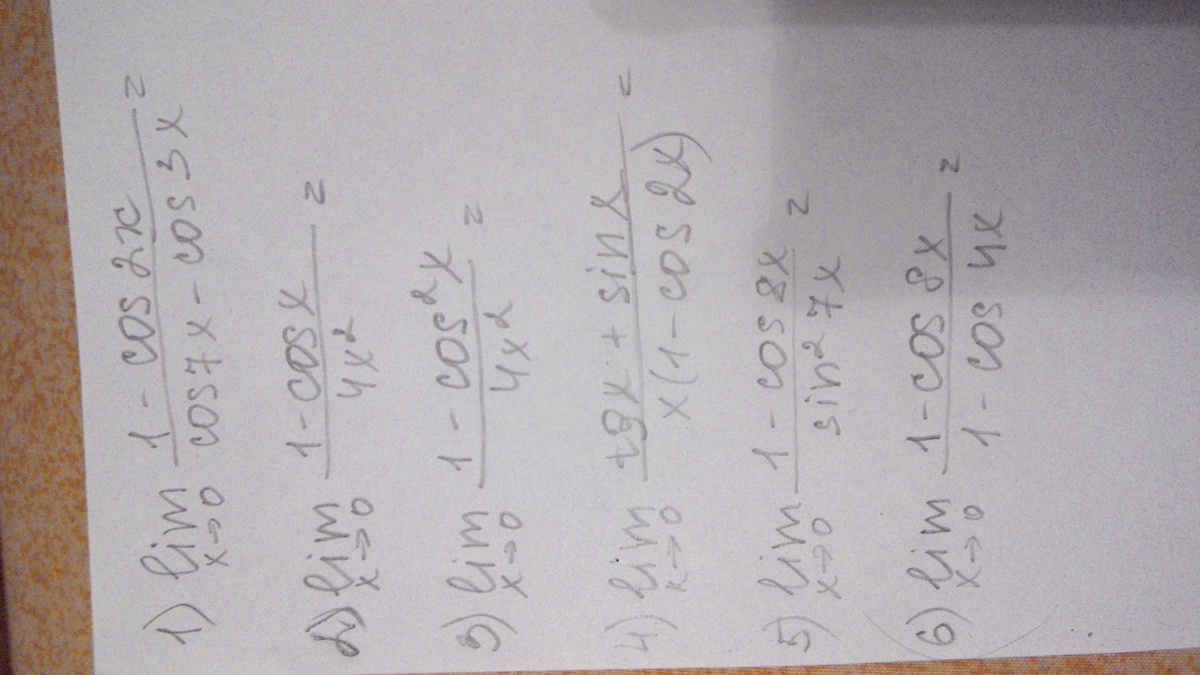 1) lim x→0 (1 - cos 2x)/(cos 7x - cos 3x) =
2) lim x→0 (1 - cos x)/(4x²) =
3) lim x→0 (1 - cos²x)/(4x²) =
4) lim x→0 (tgx + sin x)/(x(1 - cos 2x)) =
5) lim x→0 (1 - cos 8x)/(sin² 7x) =
6) lim x→0 (1 - cos 8x)/(1 - cos 4x) =